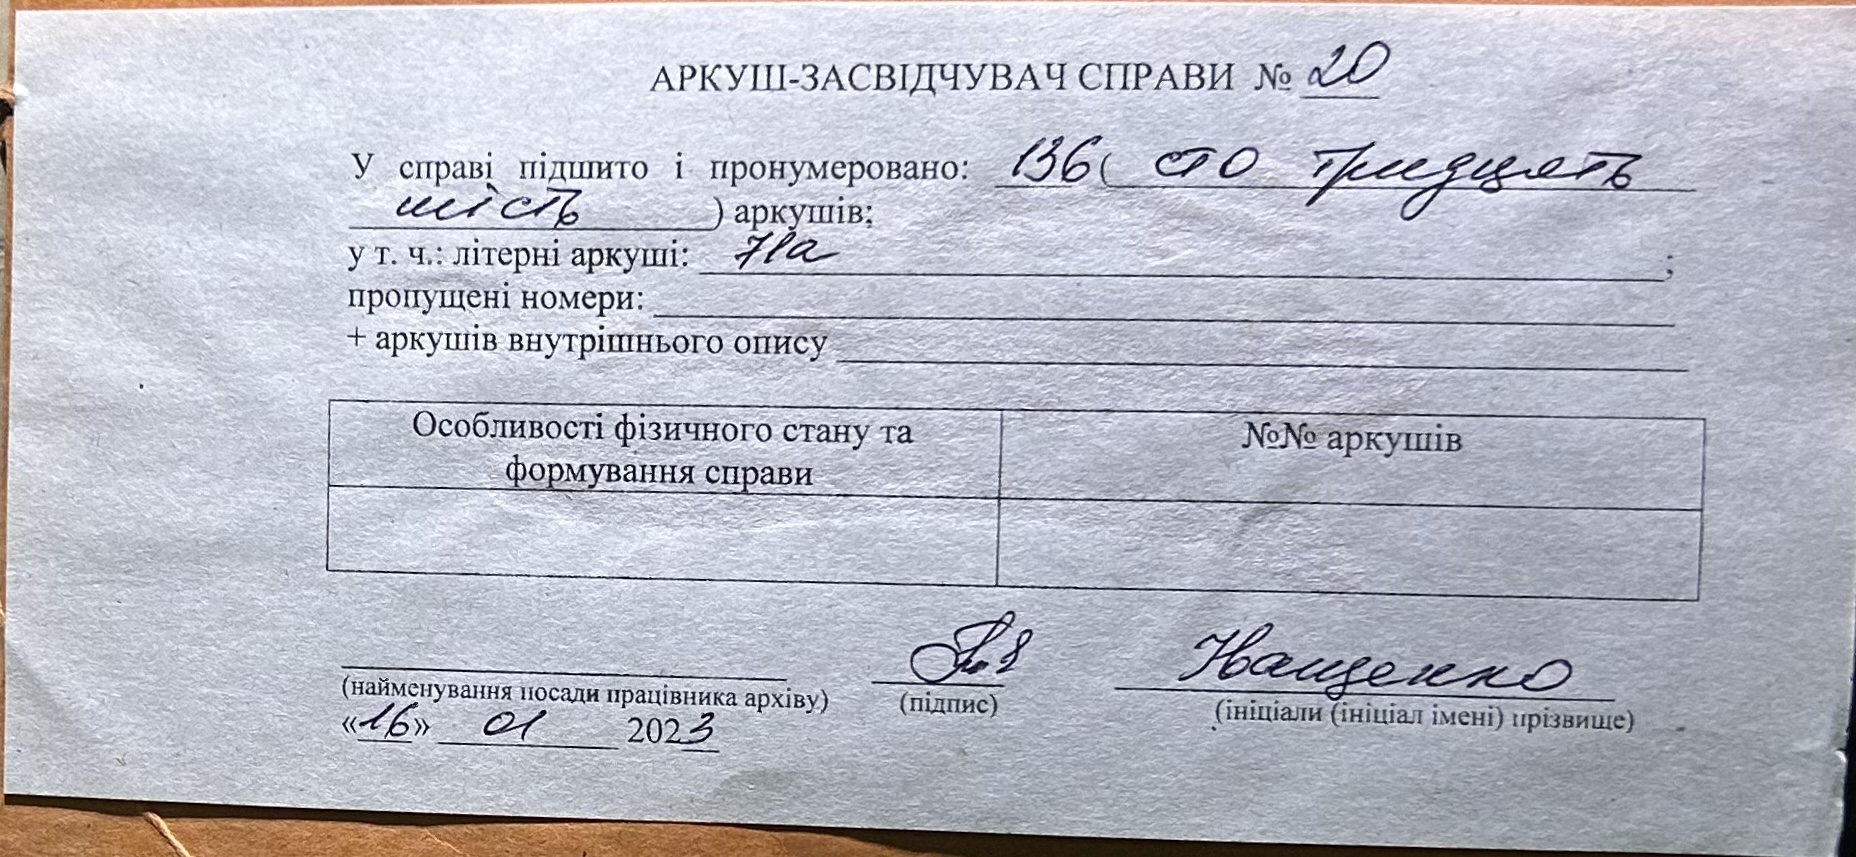 АРКУШ-ЗАСВІДЧУВАЧ СПРАВИ № 20
У справі підшито і пронумеровано: 136 ( сто тридцять
шість ) аркушів;
у т. ч.: літерні аркуші: 71а ;
пропущені номери:
+ аркушів внутрішнього опису
Особливості фізичного стану та формування справи
№№ аркушів
Іващенко
(найменування посади працівника архіву) (підпис) (ініціали (ініціал імені) прізвище)
«16» 01 2023